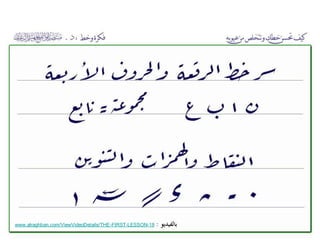 كيف تحسن خطك وتتخلص من عيوبه
فكرة وخط : د .
سر خط الرقعة والحروف الأربعة
ن ا ب ع مجموعة = نابع
النقاط والهمزات والتنوين
بالفيديو : www.alraghban.com/ViewVideoDetails/THE-FIRST-LESSON-18